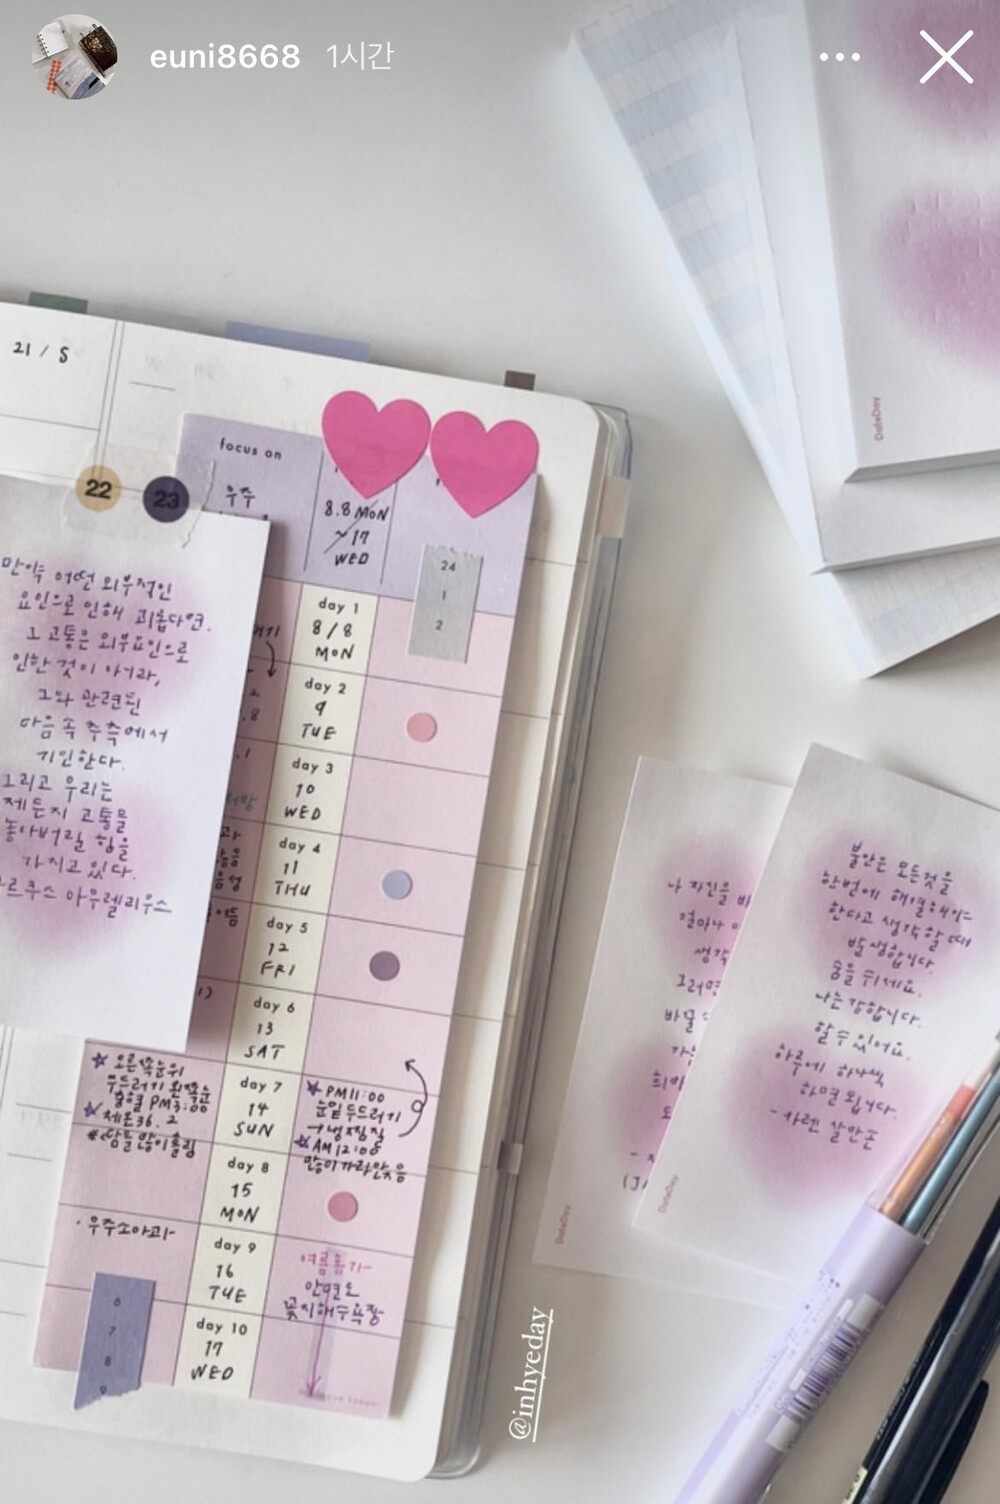 euni8668 1시간
21 / 5
22
23
만약 어떤 외부적인
요인으로 인해 괴롭다면.
그 고통은 외부요인으로
인한 것이 아니라,
그와 관련된
마음 속 추측에서
기인한다.
그리고 우리는
고통을
놓아버릴 힘을
가지고 있다.
아우렐리우스
focus on
우주
8.8 MON
~17
WED
24
1
2
day 1
8/8
MON
day 2
9
TUE
day 3
10
WED
day 4
11
THU
day 5
12
FRI
day 6
13
SAT
day 7
14
SUN
day 8
15
MON
day 9
16
TUE
day 10
17
WED
오른쪽눈위
두드러기 왼쪽눈
체온 36.2
땀을 많이 흘림
PM 11:00
눈밑 두드러기
→ 냉찜질
AM 12:00
많이 가라앉음
· 우주소아과
여름휴가
안면도
꽃지해수욕장
6
7
8
9
DateDay
나 자신을
얼마나
생각
그러면
바꿀
DateDay
불안은 모든것을
한번에 해결해야
한다고 생각할 때
발생합니다.
숨을 쉬세요.
나는 강합니다.
할 수 있어요.
하루에 하나씩
하면 됩니다.
- 카렌 살만손
DateDay
@inhyeday